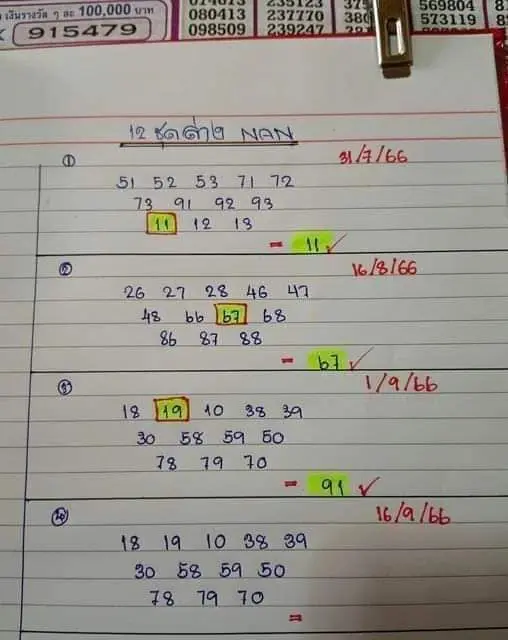 เงินรางวัล ๆ ละ 100,000 บาท
915479
080413
098509
235123
237770
239247
569804
573119
12 ชุดต่าง NAN
① 31/7/66
51 52 53 71 72
73 91 92 93
11 12 13
= 11 ✓
② 16/8/66
26 27 28 46 47
48 66 67 68
86 87 88
= 67 ✓
③ 1/9/66
18 19 10 38 39
30 58 59 50
78 79 70
= 91 ✓
④ 16/9/66
18 19 10 38 39
30 58 59 50
78 79 70
=